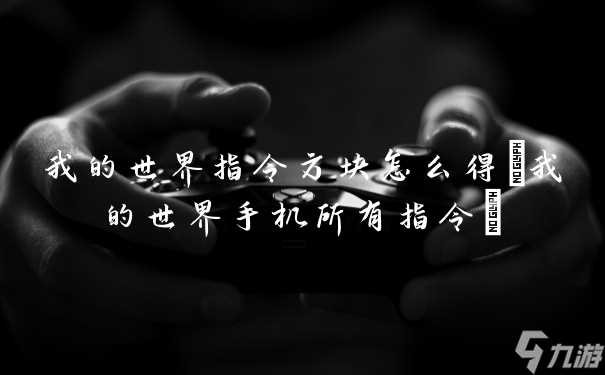 我的世界指令方块怎么得 我
的世界手机所有指令
九游